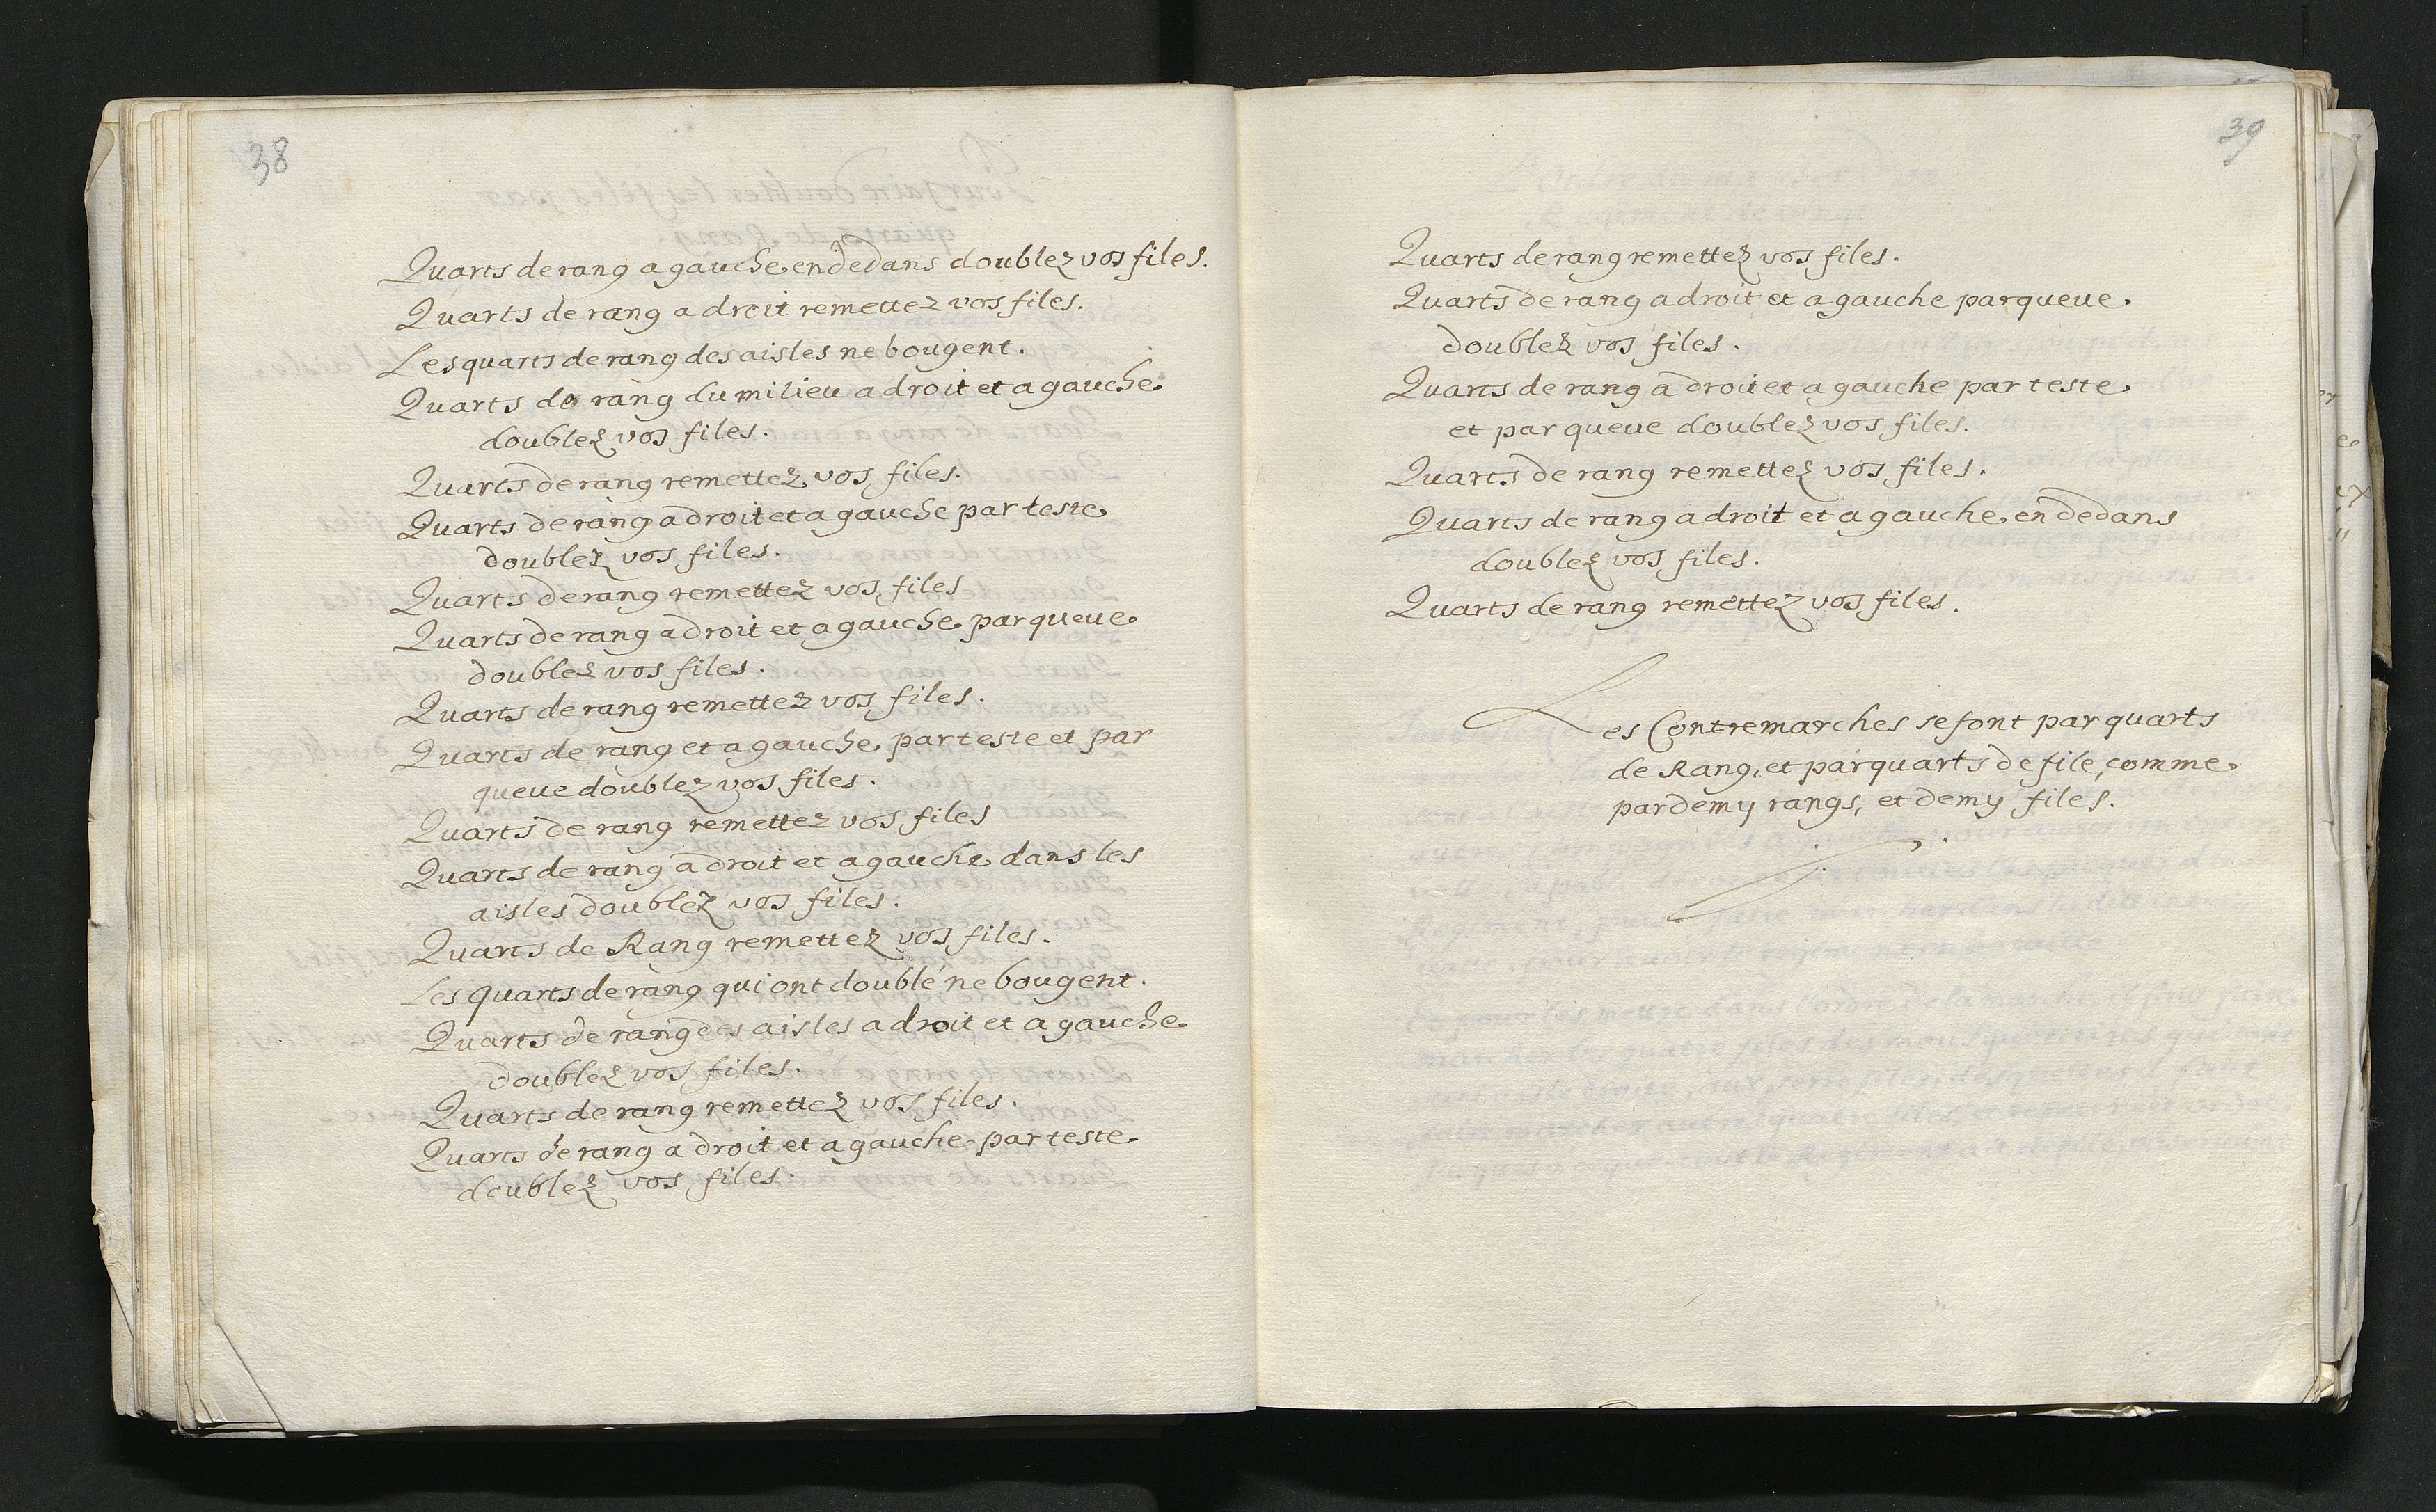 38
Quarts de rang a gauche en dedans doublez vos files.
Quarts de rang a droit remettez vos files.
Les quarts de rang des aisles ne bougent.
Quarts de rang du milieu a droit et a gauche
doublez vos files.
Quarts de rang remettez vos files.
Quarts de rang a droit et a gauche par teste
doublez vos files.
Quarts de rang remettez vos files
Quarts de rang a droit et a gauche par queue
doublez vos files.
Quarts de rang remettez vos files.
Quarts de rang et a gauche par teste et par
queue doublez vos files.
Quarts de rang remettez vos files
Quarts de rang a droit et a gauche dans les
aisles doublez vos files.
Quarts de Rang remettez vos files.
Les quarts de rang qui ont doublé ne bougent.
Quarts de rang des aisles a droit et a gauche
doublez vos files.
Quarts de rang remettez vos files.
Quarts de rang a droit et a gauche par teste
doublez vos files.
39
Quarts de rang remettez vos files.
Quarts de rang a droit et a gauche par queue
doublez vos files.
Quarts de rang a droit et a gauche par teste
et par queue doublez vos files.
Quarts de rang remettez vos files.
Quarts de rang a droit et a gauche en dedans
doublez vos files.
Quarts de rang remettez vos files.
Les Contremarches se font par quarts
de Rang, et par quarts de file, comme
par demy rangs, et demy files.